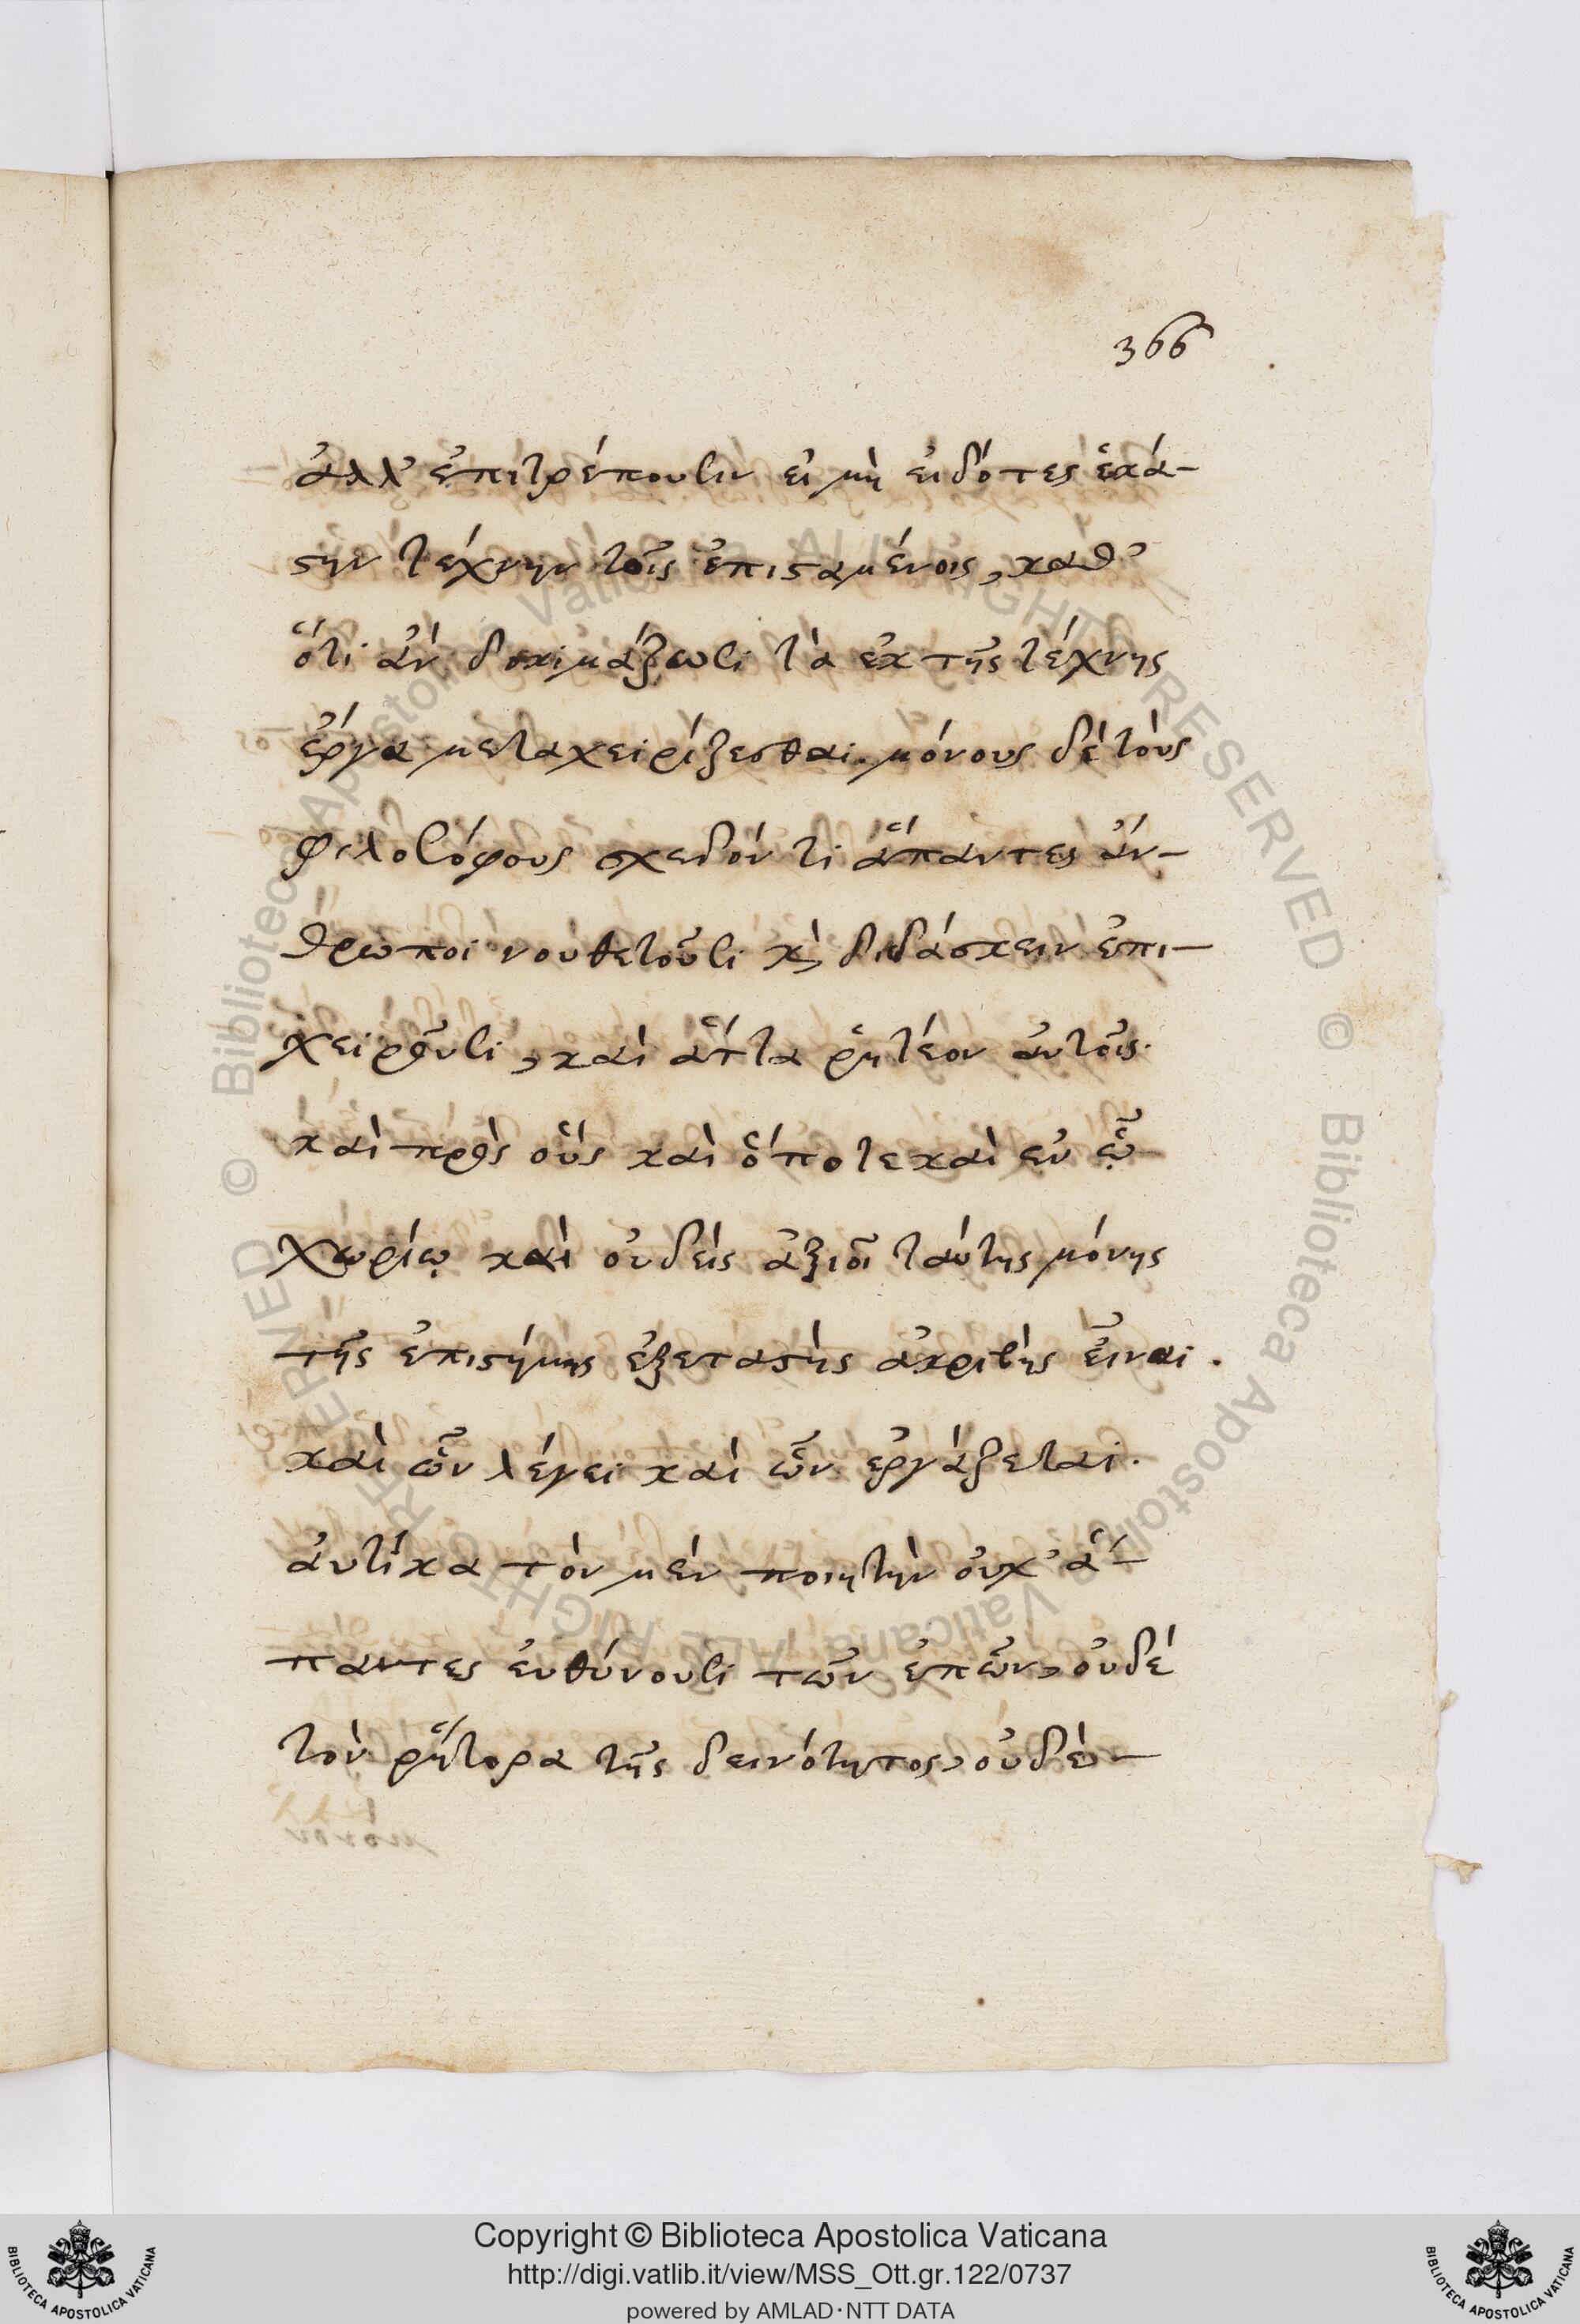 366
ἀλλ' ἐπιτρέπουσιν εἰ μὴ εἰδότες ἑκά-
ϛην τέχνην τοῖς ἐπιϛαμένοις, καθ'
ὅτι ἂν δοκιμάζωσι τὰ ἐκ τῆς τέχνης
ἔργα μεταχειρίζεσθαι. μόνους δὲ τοὺς
φιλοσόφους σχεδόν τι ἅπαντες ἄν-
θρωποι νουθετοῦσι κ̀ διδάσκειν ἐπι-
χειροῦσι, καὶ ἅττα ῥητέον αὐτοῖς.
καὶ πρὸς οὓς καὶ ὅποτε καὶ ἐν ᾧ
χωρίῳ καὶ οὐδεὶς ἀξιοῖ ταύτης μόνης
τῆς ἐπιϛήμης ἐξεταϛὴς ἀκριβὴς εἶναι.
καὶ ὧν λέγει καὶ ὧν ἐργάζεται.
αὐτίκα τὸν μὲν ποιητὴν οὐχ' ἅ-
παντες εὐθύνουσι τῶν ἐπῶν, οὐδὲ
τὸν ῥήτορα τῆς δεινότητος, οὐδὲ-
Copyright © Biblioteca Apostolica Vaticana
http://digi.vatlib.it/view/MSS_Ott.gr.122/0737
powered by AMLAD·NTT DATA
BIBLIOTECA APOSTOLICA VATICANA
BIBLIOTECA APOSTOLICA VATICANA
© Biblioteca Apostolica Vaticana ALL RIGHTS RESERVED
© Biblioteca Apostolica Vaticana ALL RIGHT RESERVED